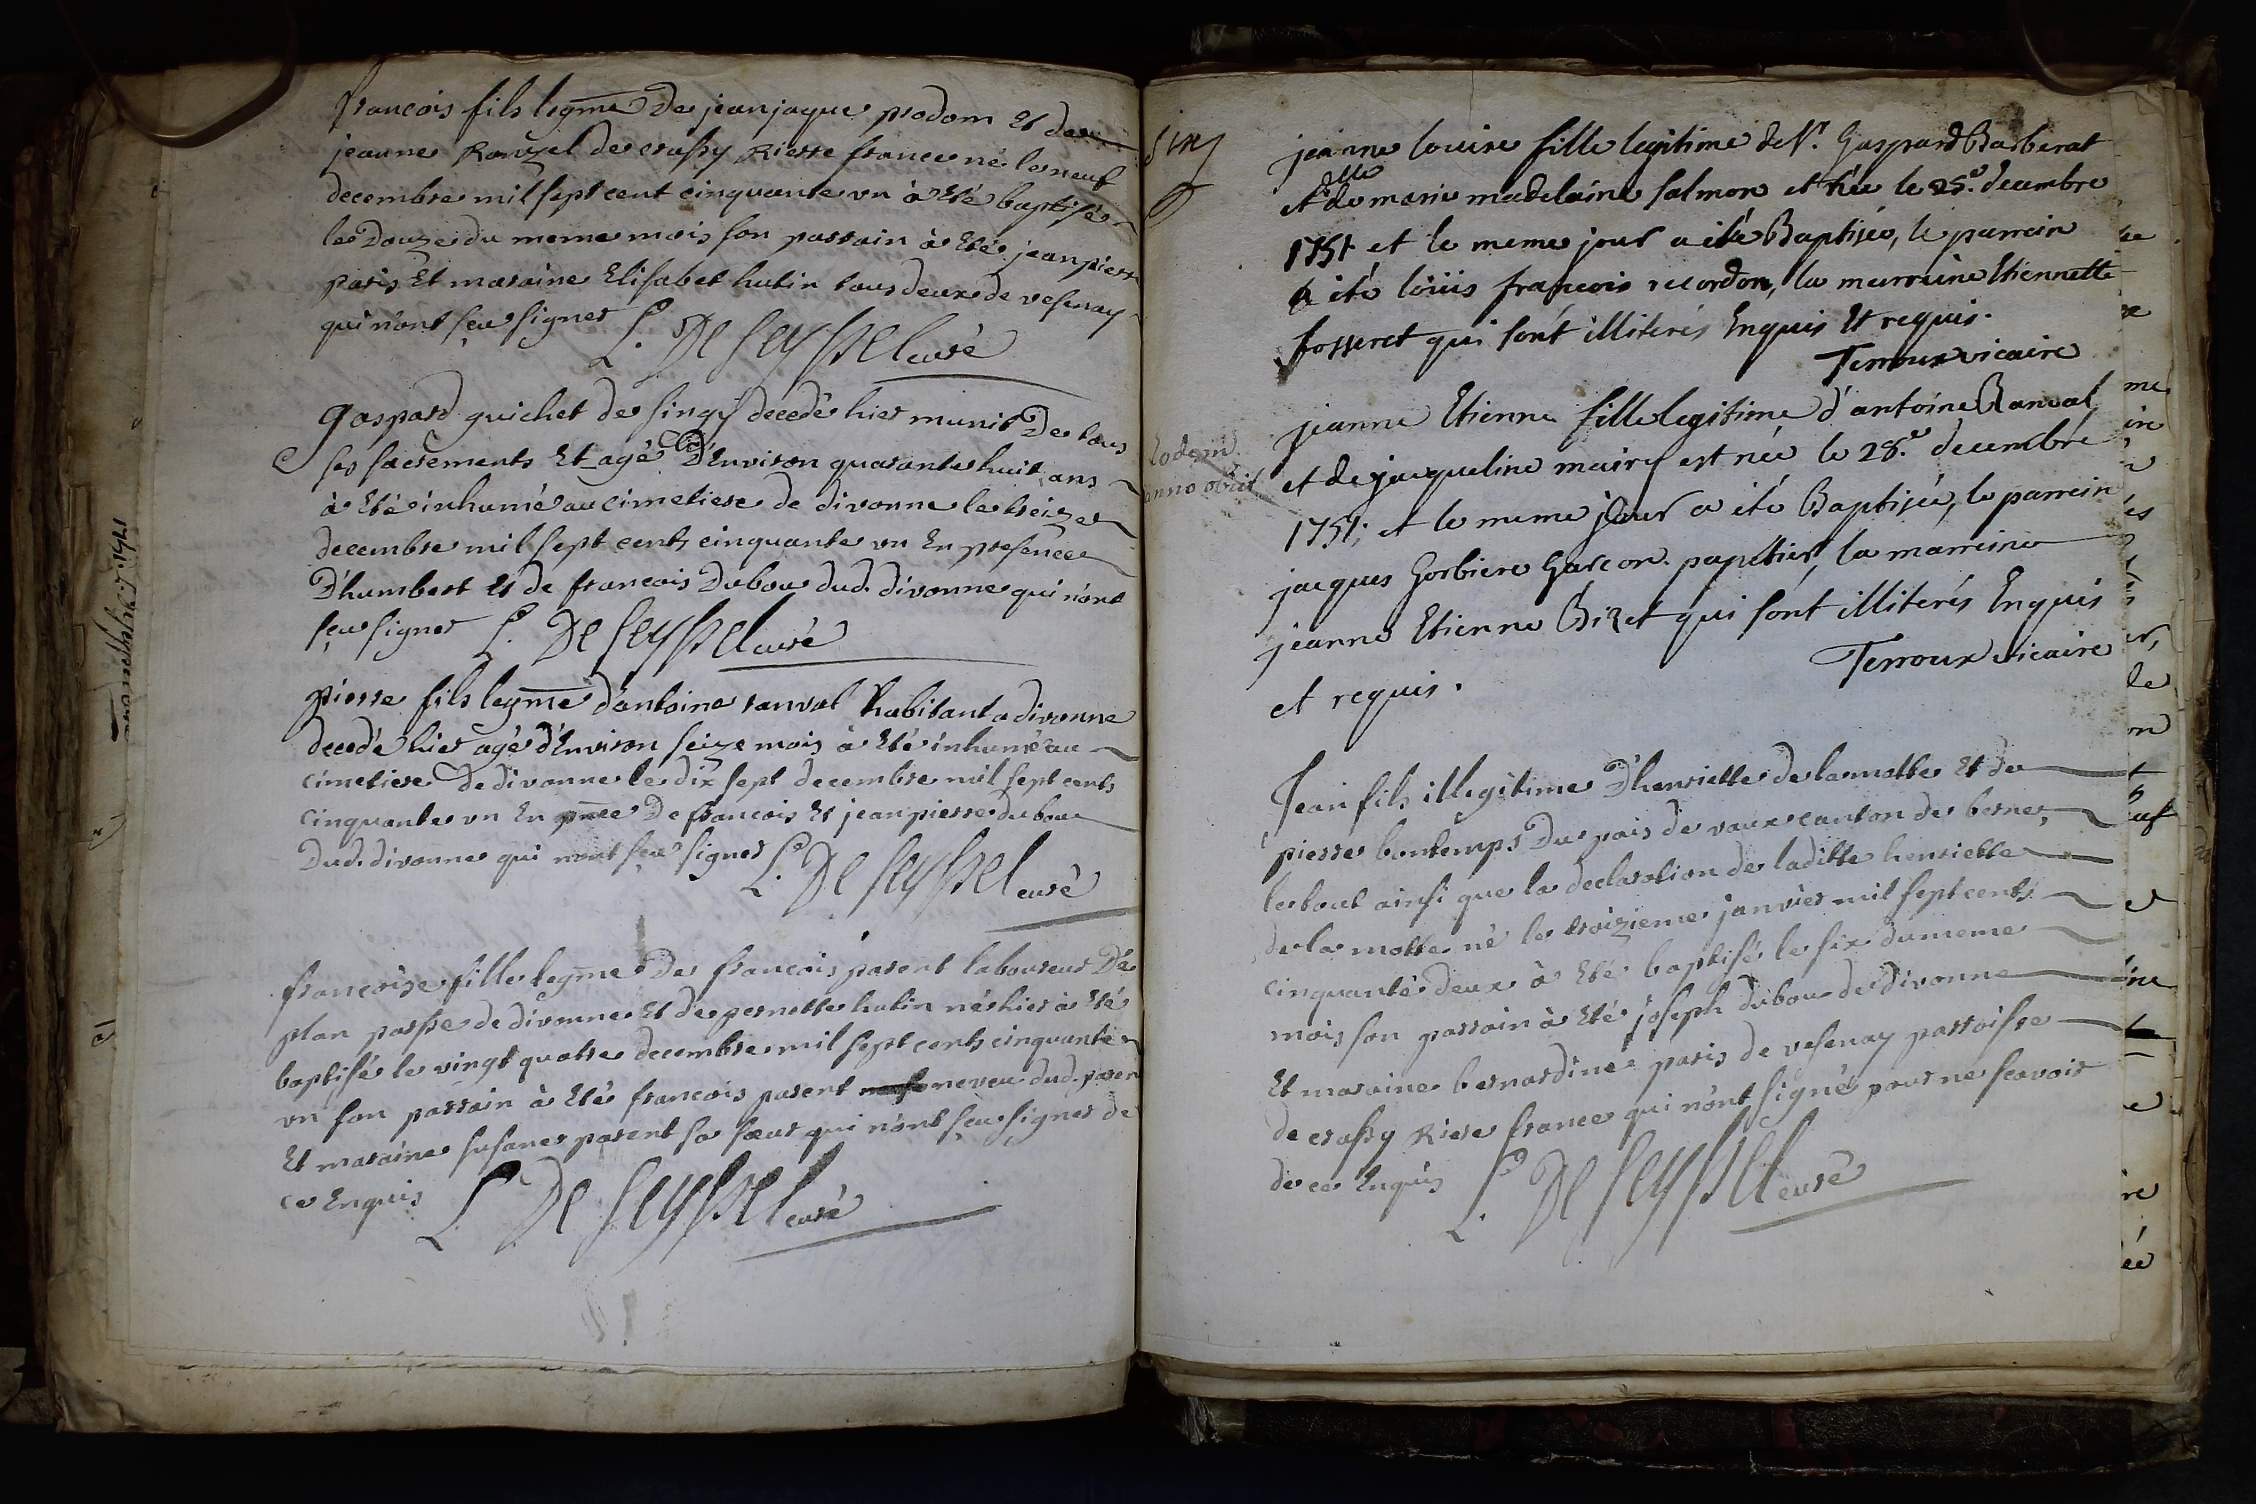 francois fils legme De jean jaque prodom Et de
jeanne Rouzel de crassy Riesse france né le neuf
decembre mil sept cent cinquante un à Eté baptisé
le Douze du meme mois son parrain à Eté jean pierre
paris Et maraine Elisabet hutin tous deux de vesenay
qui n'ont sçu signer L. De Seyssel curé
gaspard guichet de singy decedé hier munit De tous
ses sacrements Et agé D'Environ quarante huit ans
à Eté inhumé au cimetiere de divonne le treize
decembre mil sept cents cinquante un En presence
D'humbert Et de francois Dubou dud. divonne qui n'ont
sçu signer L. De Seyssel curé
pierre fils legme d'antoine ranval habitant a divonne
decedé hier agé d'Environ seize mois à Eté inhumé au
cimetiere De divonne le dix sept decembre mil sept cents
cinquante un En pnce De francois Et jean pierre dubou
Dud. divonne qui n'ont sçu signer L. De Seyssel curé
francoise fille legme De francois parent laboureur De
plan parsse de divonne Et de pernette hutin née hier à Eté
baptisé le vingt quatre decembre mil sept cents cinquante
un son parrain à Eté francois parent neveu dud. parent
Et maraine susane parent sa sœur qui n'ont sçu signer de
ce Enquis L. De Seyssel curé
jeanne louise fille legitime de Sr. Gaspard Barberat
et de dlle marie madelaine salmon et née le 25e. decembre
1751 et le meme jour a été Baptisée, le parrein
a été loüis francois recordon, la marreine Etiennette
fosseret qui sont illiterés Enquis Et requis.
Terroux vicaire
Eodem
anno obiit
jeanne Etienne fille legitime d'antoine Ranval
et de jacqueline mairy est née le 28e. decembre
1751; et le meme jour a été Baptisée, le parrein
jacques Gorbiere Garcon papetier, la marreine
jeanne Etienne Bizet qui sont illiterés Enquis
et requis.
Terroux vicaire
Jean fils illegitime D'henriette de la motte Et de
pierre bontemps Du pais de vaux canton de berne,
le tout ainsi que la declaration de laditte henriette
de la motte né le troizieme janvier mil sept cents
cinquante deux à Eté baptisé le six du meme
mois son parrain à Eté joseph dubou de divonne
Et maraine bernardine paris de vesenay parroisse
de crassy Riere france qui n'ont signé pour ne scavoir
de ce Enquis L. De Seyssel curé